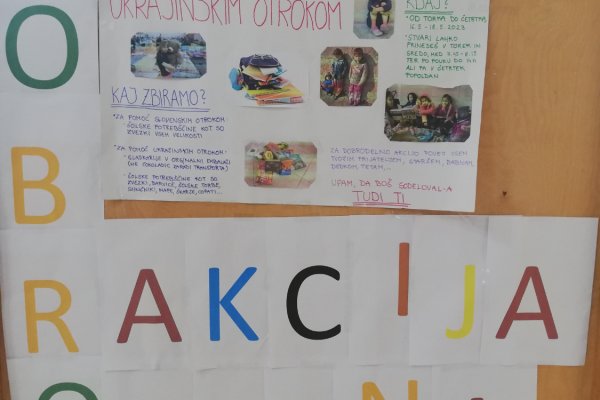 UKRAJINSKIM OTROKOM
KDAJ?
• OD TORKA DO ČETRTKA
16.5 - 18.5.2023
• STVARI LAHKO
PRINESEŠ V TOREK IN
SREDO, MED
TER PO POUKU DO
ALI PA V ČETRTEK
POPOLDAN
KAJ ZBIRAMO?
*ZA POMOČ SLOVENSKIM OTROKOM:
ŠOLSKE POTREBŠČINE KOT SO
ZVEZKI VSEH VELIKOSTI
*ZA POMOČ UKRAJINSKIM OTROKOM:
• SLADKORJI V ORIGINALNI EMBALAŽI
(NE ČOKOLADE ZARADI TRANSPORTA)
• ŠOLSKE POTREBŠČINE KOT SO
ZVEZKI, BARVICE, ŠOLSKE TORBE,
ŠILČKI, MAPE, ŠKARJE, COPATI...
ZA DOBRODELNO AKCIJO POVEJ VSEM
TVOJIM PRIJATELJEM, STARŠEM, BABICAM,
DEDKOM, TETAM,...
UPAM, DA BOŠ SODELOVAL-A
TUDI TI
O
B
R
O
AKCIJA
N